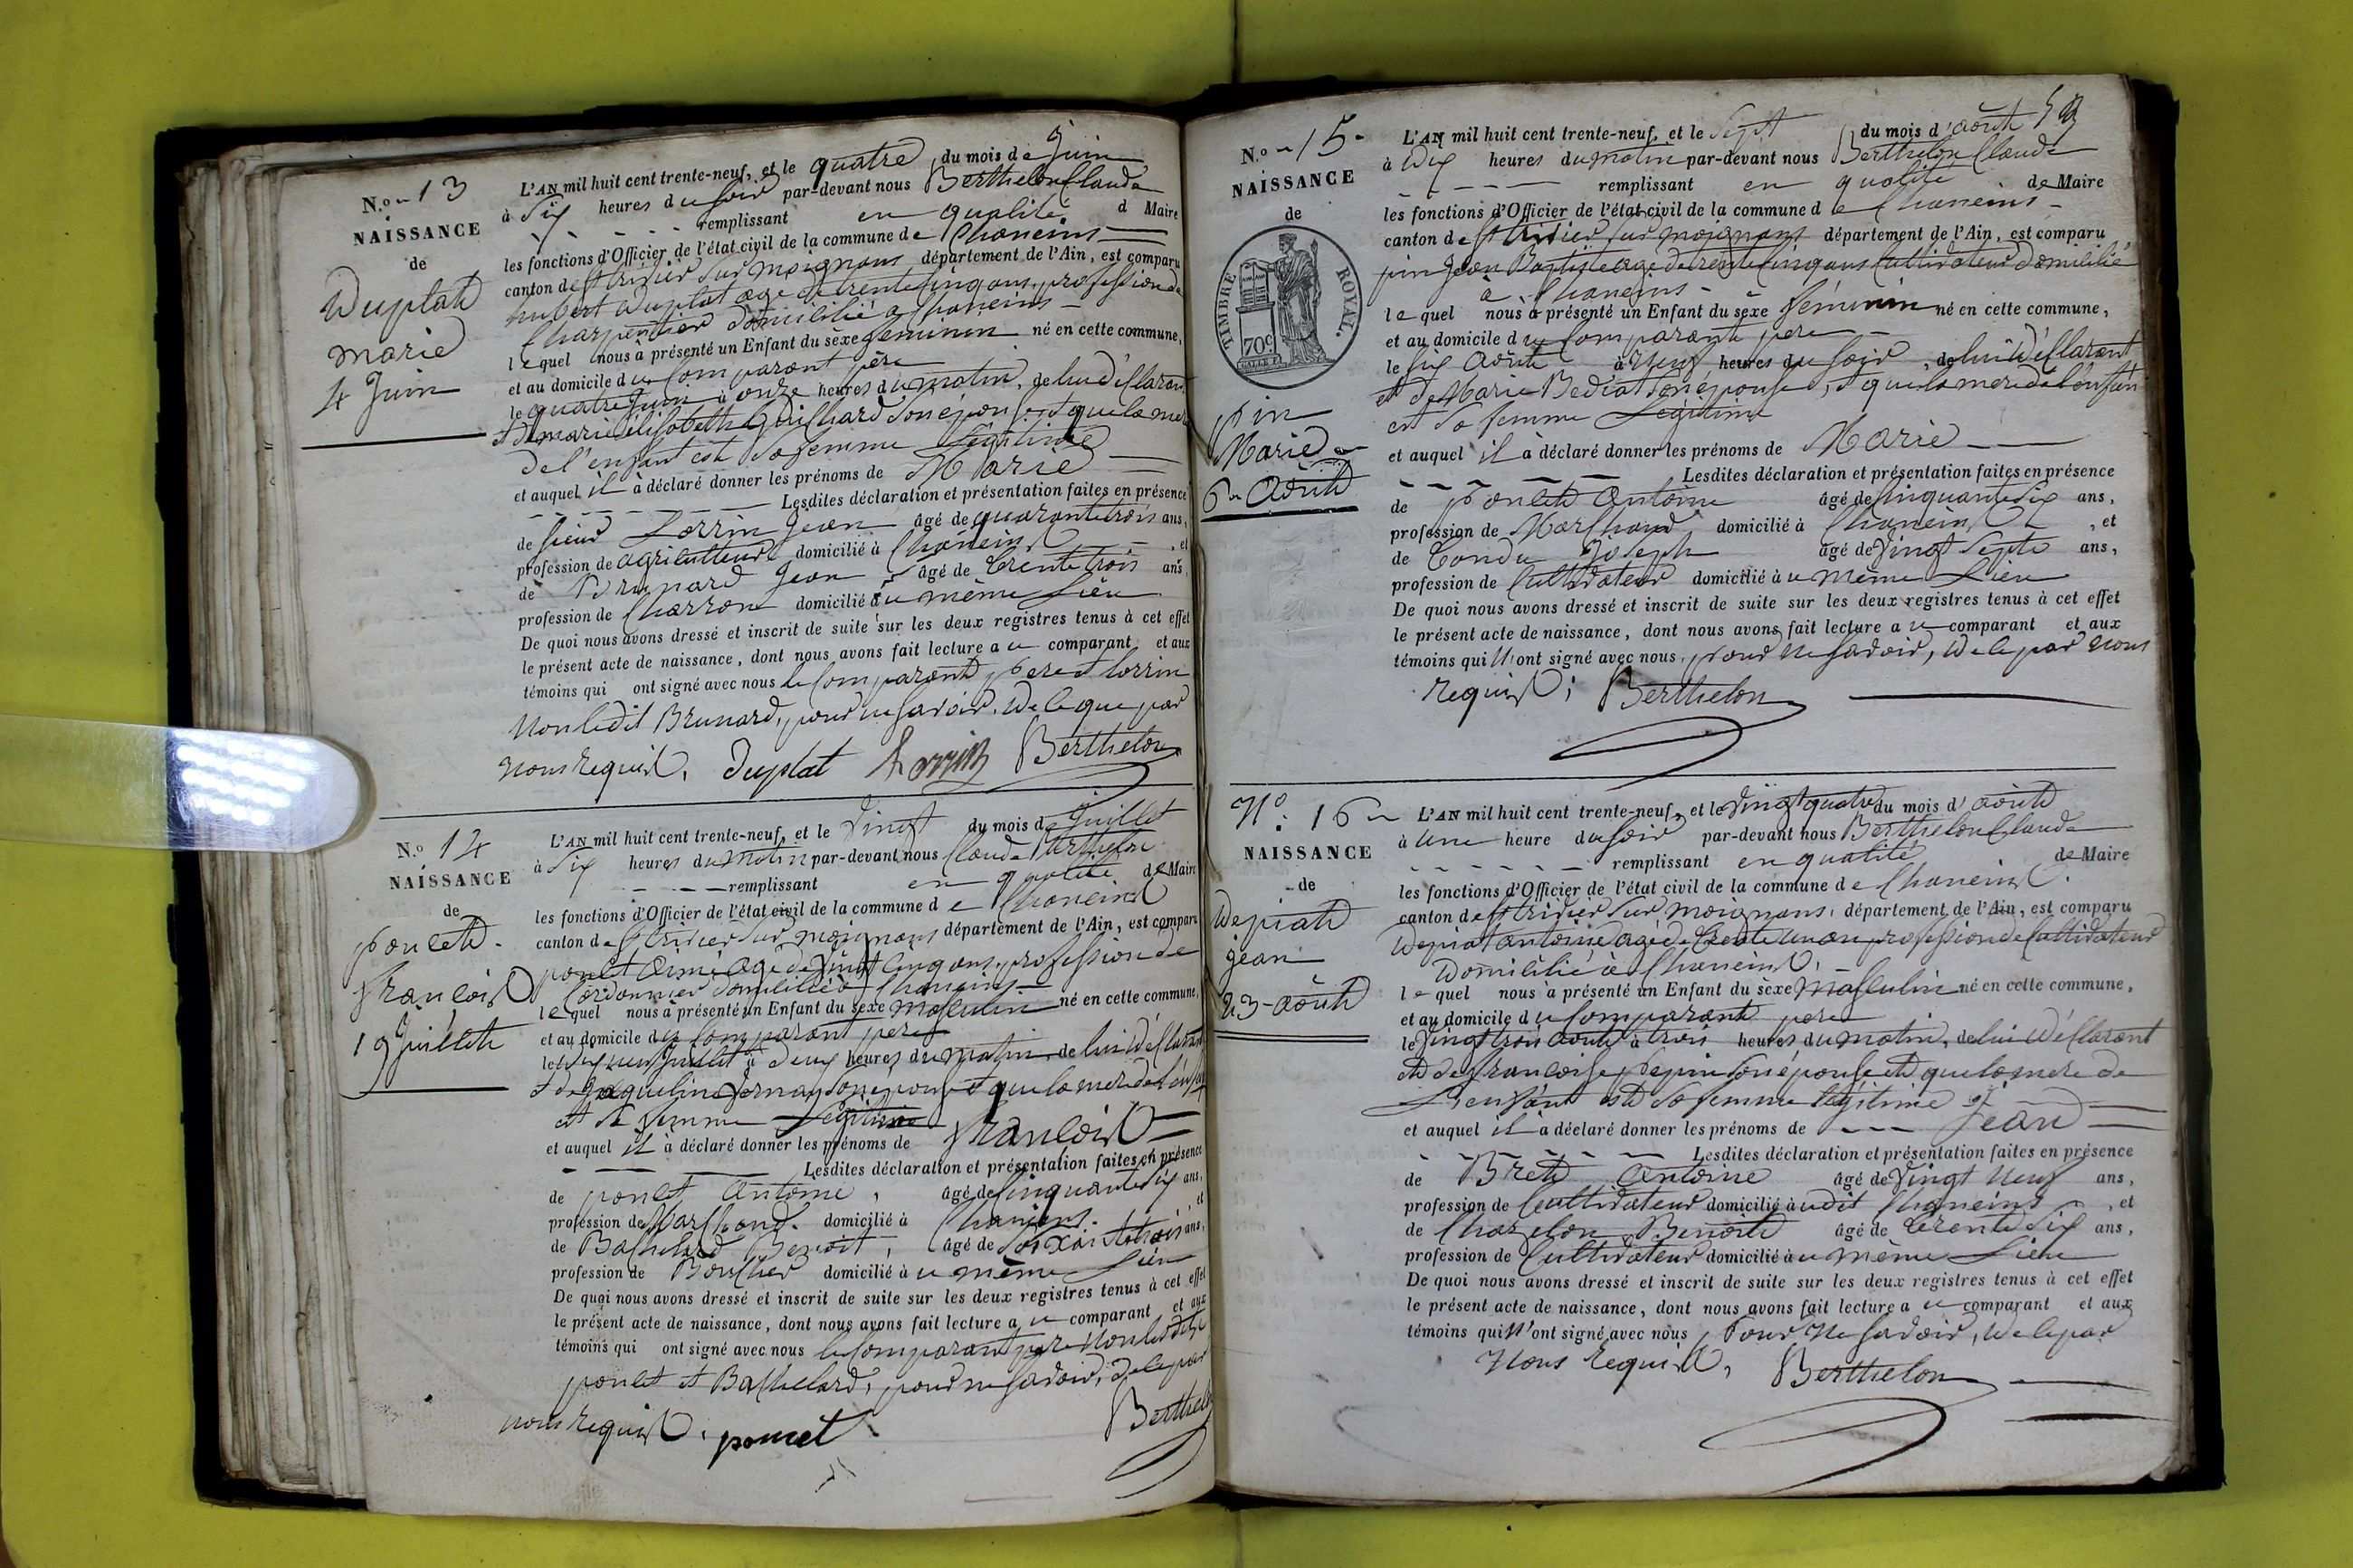 N.o 13
NAISSANCE
de
Duplat
marie
4 Juin
L'AN mil huit cent trente-neuf, et le quatre du mois de Juin
à Six heures du Soir par-devant nous Berthelon Claude
remplissant en qualité d Maire
les fonctions d'Officier de l'état civil de la commune de Chaneins
canton de St trivier Sur moignans département de l'Ain, est comparu
hubert Duplat age de trente Cinq ans, profession de
Charpentier domicilié a Chaneins
lequel nous à présenté un Enfant du sexe feminin né en cette commune,
et au domicile du Comparant père
le quatre Juin à onze heures du matin, de lui déclarant
et de marie élisabeth Son épouse, et que la mere
de l'enfant est Sa femme Légitime
et auquel il à déclaré donner les prénoms de Marie
Lesdites déclaration et présentation faites en présence
de Sieur Lorrin Jean âgé de quarante trois ans,
profession de agriculteur domicilié à Chaneins, et
de Brunard Jean âgé de trente trois ans,
profession de Charron domicilié au même Lieu
De quoi nous avons dressé et inscrit de suite sur les deux registres tenus à cet effet
le présent acte de naissance, dont nous avons fait lecture au comparant et aux
témoins qui ont signé avec nous le Comparant, pere et lorrin
Non ledit Brunard, pour ne Savoir, De ce que par
nous Requis. Duplat Lorrin Berthelon
N.o 14
NAISSANCE
de
poncet
francois
19 Juillet
L'AN mil huit cent trente-neuf, et le Vingt du mois de Juillet
à Six heures du matin par-devant nous Claude Berthelon
remplissant en qualité de Maire
les fonctions d'Officier de l'état civil de la commune de Chaneins
canton de St trivier Sur moignans département de l'Ain, est comparu
poncet aimé agé de Vingt Cinq ans, profession de
Cordonnier domicilié à Chaneins
lequel nous a présenté un Enfant du sexe masculin né en cette commune,
et au domicile du Comparant pere
le dix neuf Juillet à deux heures du matin, de lui déclarant
et de Jaqueline Son épouse et que la mere de l'enfant
est Sa femme Légitime
et auquel il à déclaré donner les prénoms de francois
Lesdites déclaration et présentation faites en présence
de poncet Antoine, âgé de Cinquante Six ans,
profession de Marchand. domicilié à Chaneins, et
de Bachelard Benoit, âgé de Soixante trois ans,
profession de Boucher domicilié au même Lieu
De quoi nous avons dressé et inscrit de suite sur les deux registres tenus à cet effet
le présent acte de naissance, dont nous avons fait lecture au comparant et aux
témoins qui ont signé avec nous le Comparant pere Non les dits
poncet et Bachelard, pour ne Savoir, De ce par
nous Requis. poncet Berthelon
N.o 15
NAISSANCE
de
TIMBRE ROYAL.
70c
pin
Marie
6 Août
L'AN mil huit cent trente-neuf, et le Sept du mois d'août
à Dix heures du matin par-devant nous Berthelon Claude
remplissant en qualité de Maire
les fonctions d'Officier de l'état civil de la commune de Chaneins
canton de St trivier Sur moignans département de l'Ain, est comparu
pin Jean Baptiste agé de trente Cinq ans Cultivateur domicilié
à Chaneins
lequel nous à présenté un Enfant du sexe féminin né en cette commune,
et au domicile du Comparant pere
le Six Août à neuf heures du Soir, de lui déclarant
et de Marie Bediat Son épouse, et que la mere de l'enfant
est Sa femme Légitime
et auquel il à déclaré donner les prénoms de Marie
Lesdites déclaration et présentation faites en présence
de poncet antoine âgé de Cinquante Six ans,
profession de Marchand domicilié à Chaneins, et
de Condu Joseph âgé de Vingt Sept ans,
profession de Cultivateur domicilié au même Lieu
De quoi nous avons dressé et inscrit de suite sur les deux registres tenus à cet effet
le présent acte de naissance, dont nous avons fait lecture au comparant et aux
témoins qui N'ont signé avec nous, pour ne Savoir, De ce par nous
Requis; Berthelon
N.o 16
NAISSANCE
de
Depiat
Jean
23 août
L'AN mil huit cent trente-neuf, et le Vingt quatre du mois d'août
à Une heure du Soir par-devant nous Berthelon Claude
remplissant en qualité de Maire
les fonctions d'Officier de l'état civil de la commune de Chaneins.
canton de St trivier Sur moignans, département de l'Ain, est comparu
Depiat antoine agé de trente un an profession de Cultivateur
Domicilié à Chaneins,
lequel nous a présenté un Enfant du sexe Masculin né en cette commune,
et au domicile du Comparant pere
le Vingt trois août à trois heures du matin, de lui déclarant
et de francoise pepin Son épouse et que la mere de
L'enfant est Sa femme légitime
et auquel il a déclaré donner les prénoms de Jean
Lesdites déclaration et présentation faites en présence
de Bret Antoine âgé de Vingt Neuf ans,
profession de Cultivateur domicilié audit Chaneins, et
de Chazelon Benoit âgé de trente Six ans,
profession de Cultivateur domicilié au même Lieu
De quoi nous avons dressé et inscrit de suite sur les deux registres tenus à cet effet
le présent acte de naissance, dont nous avons fait lecture au comparant et aux
témoins qui N'ont signé avec nous, Pour Ne Savoir, De ce par
Nous Requis, Berthelon